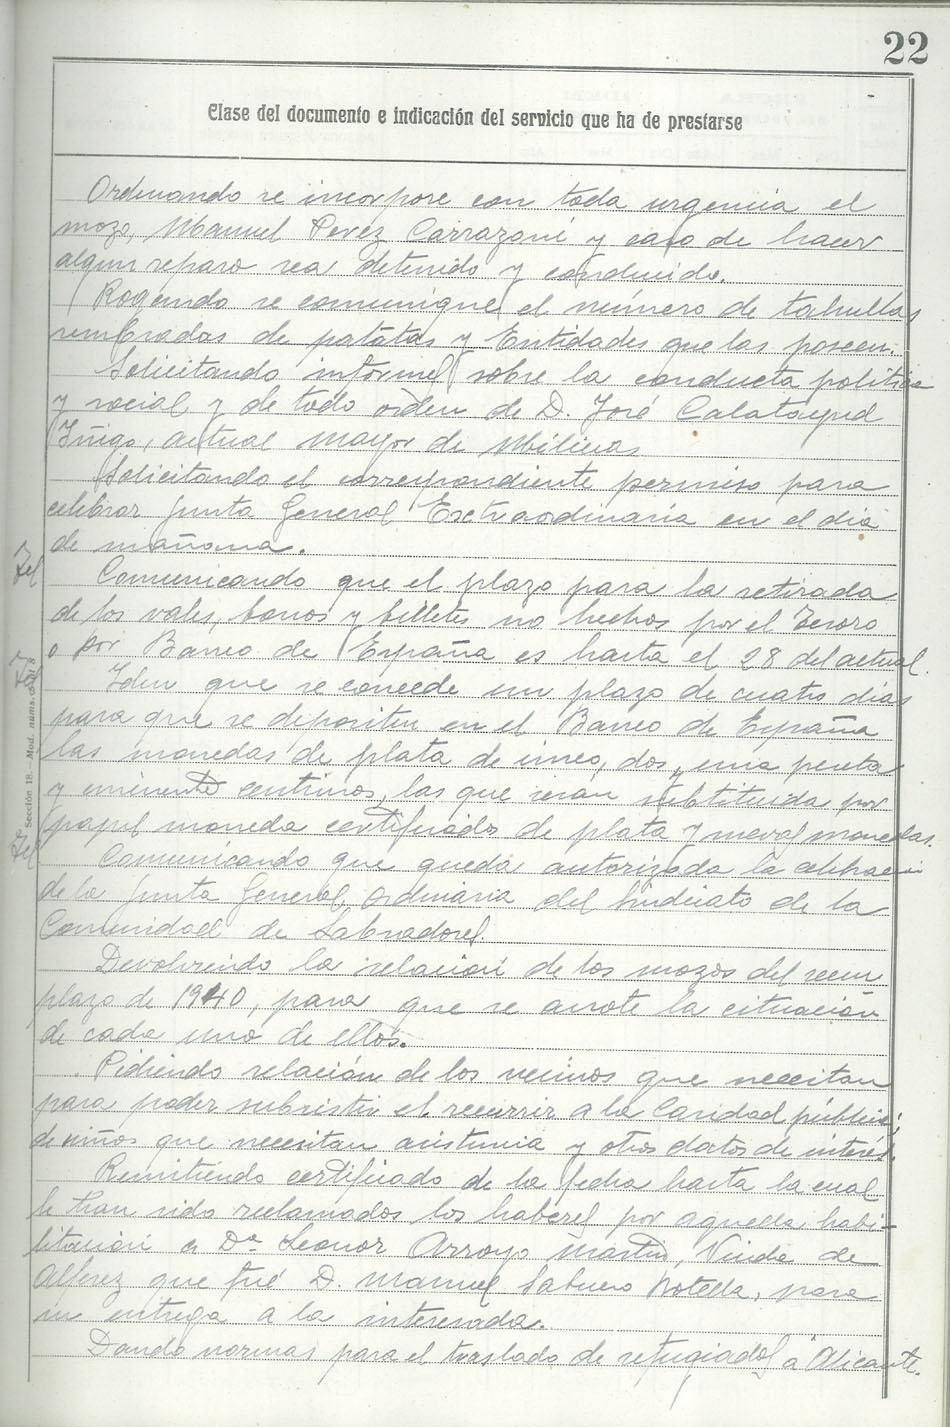 22
Clase del documento e indicación del servicio que ha de prestarse
Ordenando se incorpore con toda urgencia el
mozo, Manuel Perez Carrazoni y caso de hacer
algun reparo sea detenido y conducido.
Rogando se comunique el número de tahullas
sembradas de patatas y Entidades que las poseen.
Solicitando informes sobre la conducta politica
y social y de todo orden de D. José Calatayud
Iñigo, actual Mayor de Milicias
Solicitando el correspondiente permiso para
celebrar Junta General Extraodinaria en el dia
de mañana.
Comunicando que el plazo para la retirada
de los vales, bonos y billetes no hechos por el Tesoro
o por Banco de España es hasta el 28 del actual.
Idem que se concede un plazo de cuatro dias
para que se depositen en el Banco de España
las monedas de plata de cinco, dos, una peseta
y cincuenta centimos, las que seran substituida por
papel moneda certificados de plata y nuevas monedas.
Comunicando que queda autorizada la celebracion
de la Junta General Ordinaria del Sindicato de la
Comunidad de Labradores.
Devolviendo la relación de los mozos del reem
plazo de 1940, para que se anote la situación
de cada uno de ellos.
Pidiendo relación de los vecinos que necesitan
para poder subsistir el recurrir a la Caridad pública,
de niños que necesitan asistencia y otros datos de interés.
Remitiendo certificado de la fecha hasta la cual
le han sido reclamados los haberes por aquella habi-
litación a Dª Leonor Arroyo Martin, Viuda de
Alferez que fué D. Manuel Sabuco, para
su entrega a la interesada.
Dando normas para el traslado de refugiados a Alicante.
Sección 18.- Mod. núms.